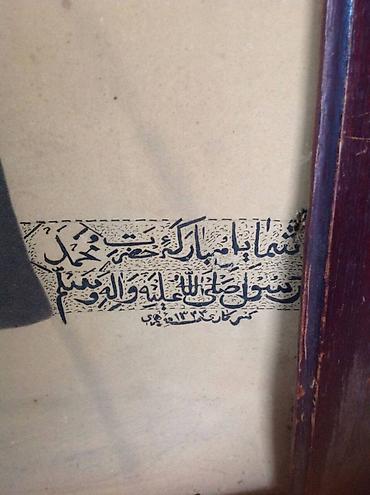 شمایل مبارکۀ حضرت محمد
رسول صلی الله علیه واله وسلم